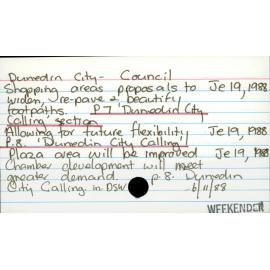 Dunedin City - Council
Shopping areas proposals to Je 19, 1988
widen, re-pave & beautify
footpaths. P7 'Dunedin City
Calling' section
Allowing for future flexibility Je 19, 1988
P.8. 'Dunedin City Calling'
Plaza area will be improved Je 19, 1988
Chamber development will meet
greater demand. p.8. Dunedin
City Calling. in DSW 6/11/88
WEEKENDER